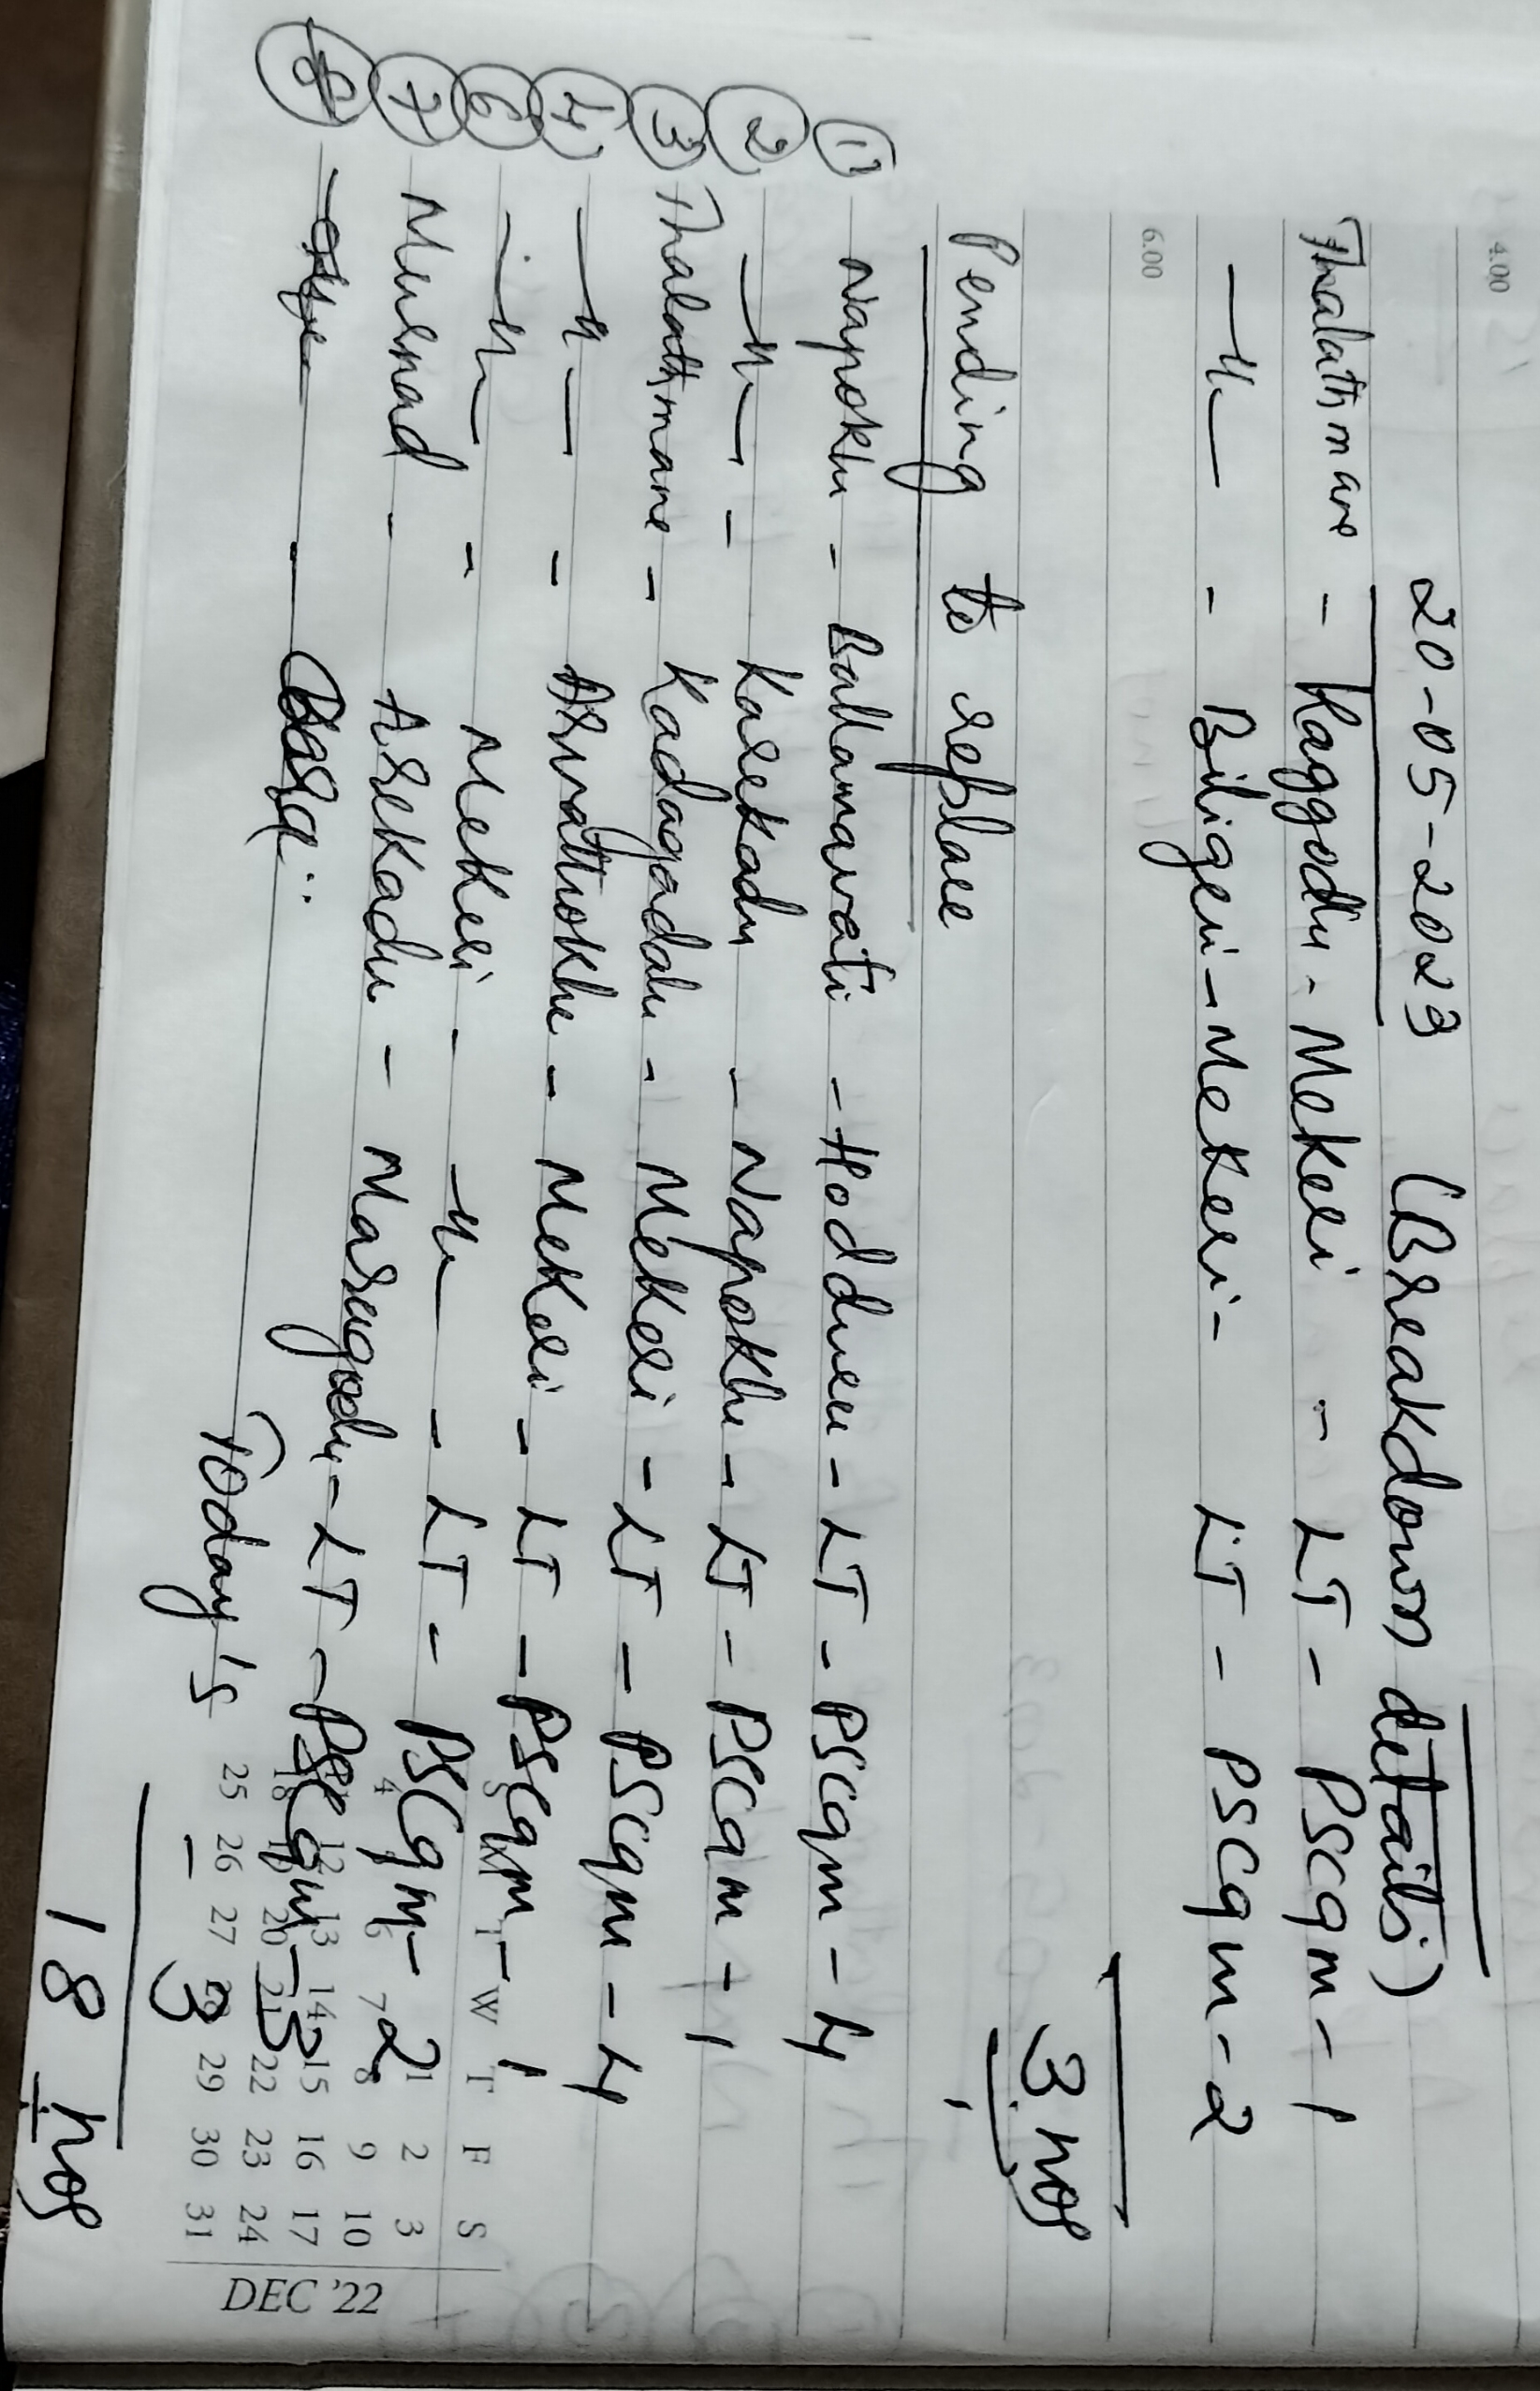 4.00
20-05-2023 (Breakdown details)
Thalathmane - Kaggodu - Mekeri - LT - PSCqm - 1
—"— - Biligeri - Mekeri - LT - PSCqm - 2
6.00
3 nos
Pending to replace
① Napoklu - Ballamavati - Hodduru - LT - PSCqm - 4
② —"— - Karekadu - Napoklu - LT - PSCqm - 1
③ Thalathmane - Kadagadalu - Mekeri - LT - PSCqm - 4
④ —"— - Arvathoklu - Mekeri - LT - PSCqm - 1
⑥ —"— - Mekeri - —"— - LT - PSCqm - 2
⑦ Murnad - Arekadu - Maragodu - LT - PSCqm - 3
⑧
Today's - 3
18 nos
S M T W T F S
1 2 3
4 5 6 7 8 9 10
11 12 13 14 15 16 17
18 19 20 21 22 23 24
25 26 27 28 29 30 31
DEC '22